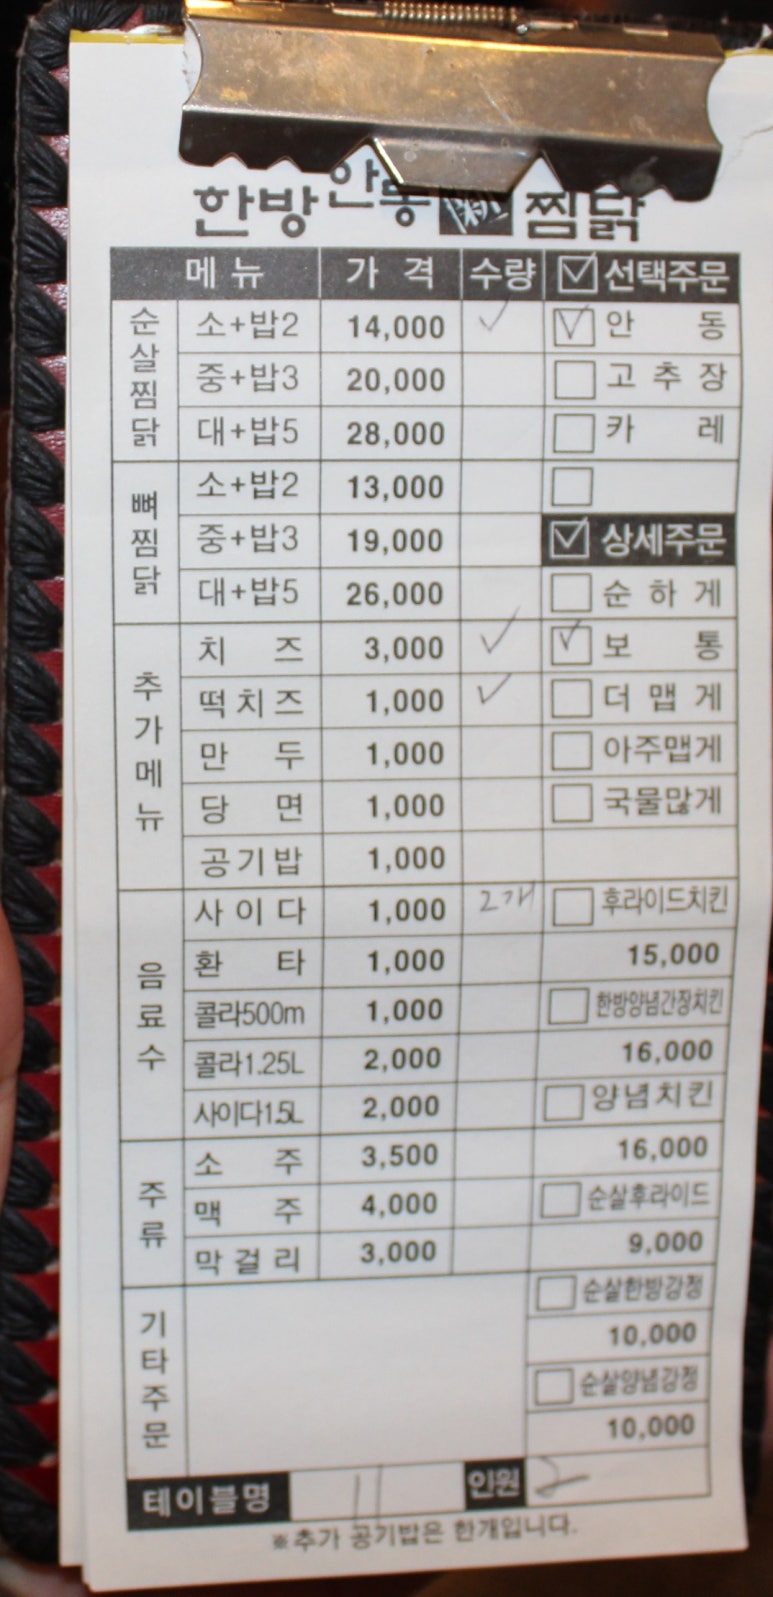 한방안동찜닭
메뉴 가격 수량 ☑ 선택주문
순살찜닭
소+밥2 14,000 ✓ ☑ 안동
중+밥3 20,000 ☐ 고추장
대+밥5 28,000 ☐ 카레
뼈찜닭
소+밥2 13,000 ☐
중+밥3 19,000 ☑ 상세주문
대+밥5 26,000 ☐ 순하게
추가메뉴
치즈 3,000 ✓ ☑ 보통
떡치즈 1,000 ✓ ☐ 더맵게
만두 1,000 ☐ 아주맵게
당면 1,000 ☐ 국물많게
공기밥 1,000
음료수
사이다 1,000 2개 ☐ 후라이드치킨
환타 1,000 15,000
콜라500m 1,000 ☐ 한방양념간장치킨
콜라1.25L 2,000 16,000
사이다1.5L 2,000 ☐ 양념치킨
주류
소주 3,500 16,000
맥주 4,000 ☐ 순살후라이드
막걸리 3,000 9,000
기타주문
☐ 순살한방강정
10,000
☐ 순살양념강정
10,000
테이블명 11 인원 2
※추가 공기밥은 한개입니다.